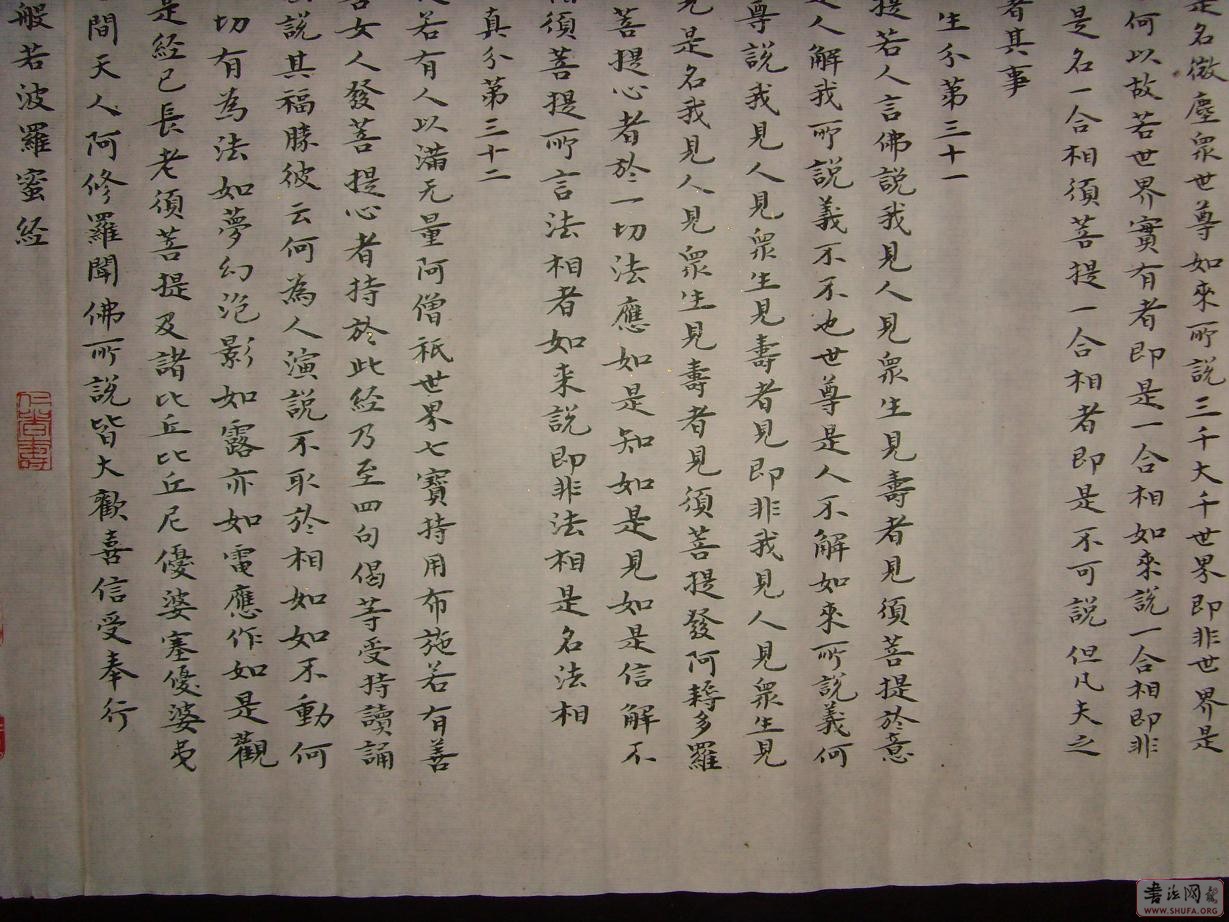 是名微塵眾世尊如來所說三千大千世界即非世界是
何以故若世界實有者即是一合相如來說一合相即非
是名一合相須菩提一合相者即是不可說但凡夫之
者其事
生分第三十一
提若人言佛說我見人見眾生見壽者見須菩提於意
是人解我所說義不不也世尊是人不解如來所說義何
尊說我見人見眾生見壽者見即非我見人見眾生見
見是名我見人見眾生見壽者見須菩提發阿耨多羅
菩提心者於一切法應如是知如是見如是信解不
相須菩提所言法相者如来說即非法相是名法相
真分第三十二
若有人以滿无量阿僧祇世界七寶持用布施若有善
善女人發菩提心者持於此経乃至四句偈等受持讀誦
說其福勝彼云何為人演說不取於相如如不動何
切有為法如夢幻泡影如露亦如電應作如是觀
是経已長老須菩提及諸比丘比丘尼優婆塞優婆夷
間天人阿修羅聞佛所說皆大歡喜信受奉行
般若波羅蜜経
書法网
WWW.SHUFA.ORG